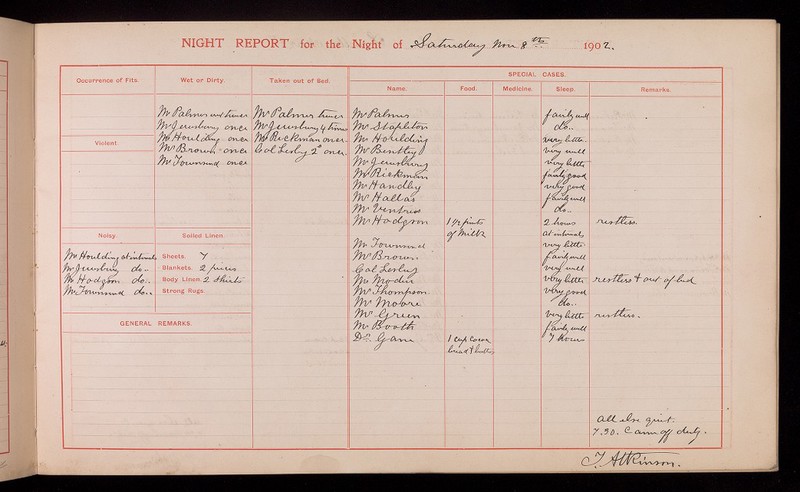 NIGHT REPORT for the Night of Saturday Nov 8th 1902.
Occurrence of Fits.
Wet or Dirty.
Mr Palmer wet
Mr Jewsbury once
Mr Houlding once
Mr Brown once
Mr Townsend once
Taken out of Bed.
Mr Palmer
Mr Jewsbury 4 times
Mr Rickman once.
Col Lesley 2 once.
Violent.
Noisy.
Mr Houlding at intervals
Mr Jewsbury do..
Mr Hodgson do..
Mr Townsend do..
Soiled Linen.
Sheets. 7
Blankets. 2 pieces
Body Linen. 2 Shirts
Strong Rugs.
GENERAL REMARKS.
SPECIAL CASES.
Name. Food. Medicine. Sleep. Remarks.
Mr Palmer fairly well
Mr Stapleton do..
Mr Houlding very little.
Mr Bentley very well
Mr Jewsbury very little
Mr Rickman fairly good
Mr Handley very good
Mr Hallas fairly well
Mr Ventris do..
Mr Hodgson 1½ pints 2 hours restless.
of Milk at intervals
Mr Townsend very little
Mr Brown fairly well
Col Lesley very well
Mr Moden very little restless & out of bed
Mr Thompson. very good
Mr Moore do.
Mr Green very little restless.
Mr Booth fairly well
Dr. Gane 1 Cup Cocoa 7 hours
bread & butter
All else quiet.
7.30. Came off duty.
J. Atkinson.